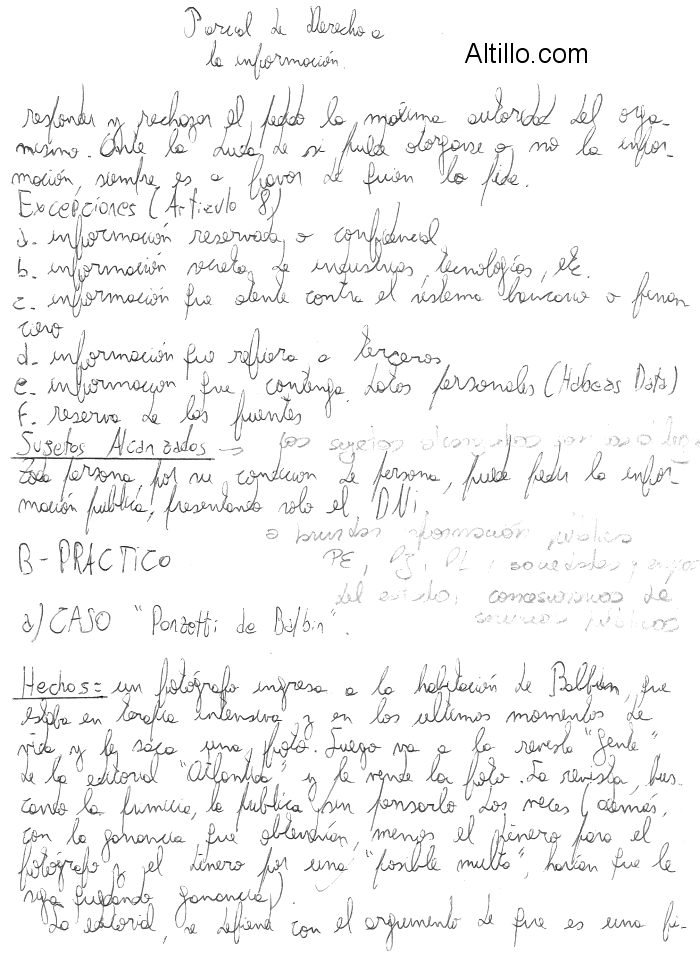 Parcial de Derecho a
la información.
Altillo.com
responder y rechazar el pedido la máxima autoridad del orga-
nismo. Ante la duda de si puede otorgarse o no la infor-
mación, siempre es a favor de quien la pide.
Excepciones (Artículo 8)
a- información reservada o confidencial
b- información secreta de industrias, tecnologías, etc.
c- información que atente contra el sistema bancario o finan
ciero
d- información que refiera a terceros
e- información que contenga datos personales (Habeas Data)
f- reserva de las fuentes
Sujetos Alcanzados
toda persona, por su condición de persona, puede pedir la infor-
mación pública, presentando solo el DNi.
B- PRACTICO
a) CASO "Ponzetti de Balbín".
Hechos= un fotógrafo ingresa a la habitación de Balbín, que
estaba en terapia intensiva y en los ultimos momentos de
vida y le saca una foto. Luego va a la revista "Gente"
de la editorial "Atlántida" y le vende la foto. La revista, bus-
cando la primicia, la publica sin pensarlo dos veces (además,
con la ganancia que obtendrían, menos el dinero para el
fotógrafo y el dinero por una "posible multa", harían que le
siga quedando ganancia).
La editorial, se defiende con el argumento de que es una fi-